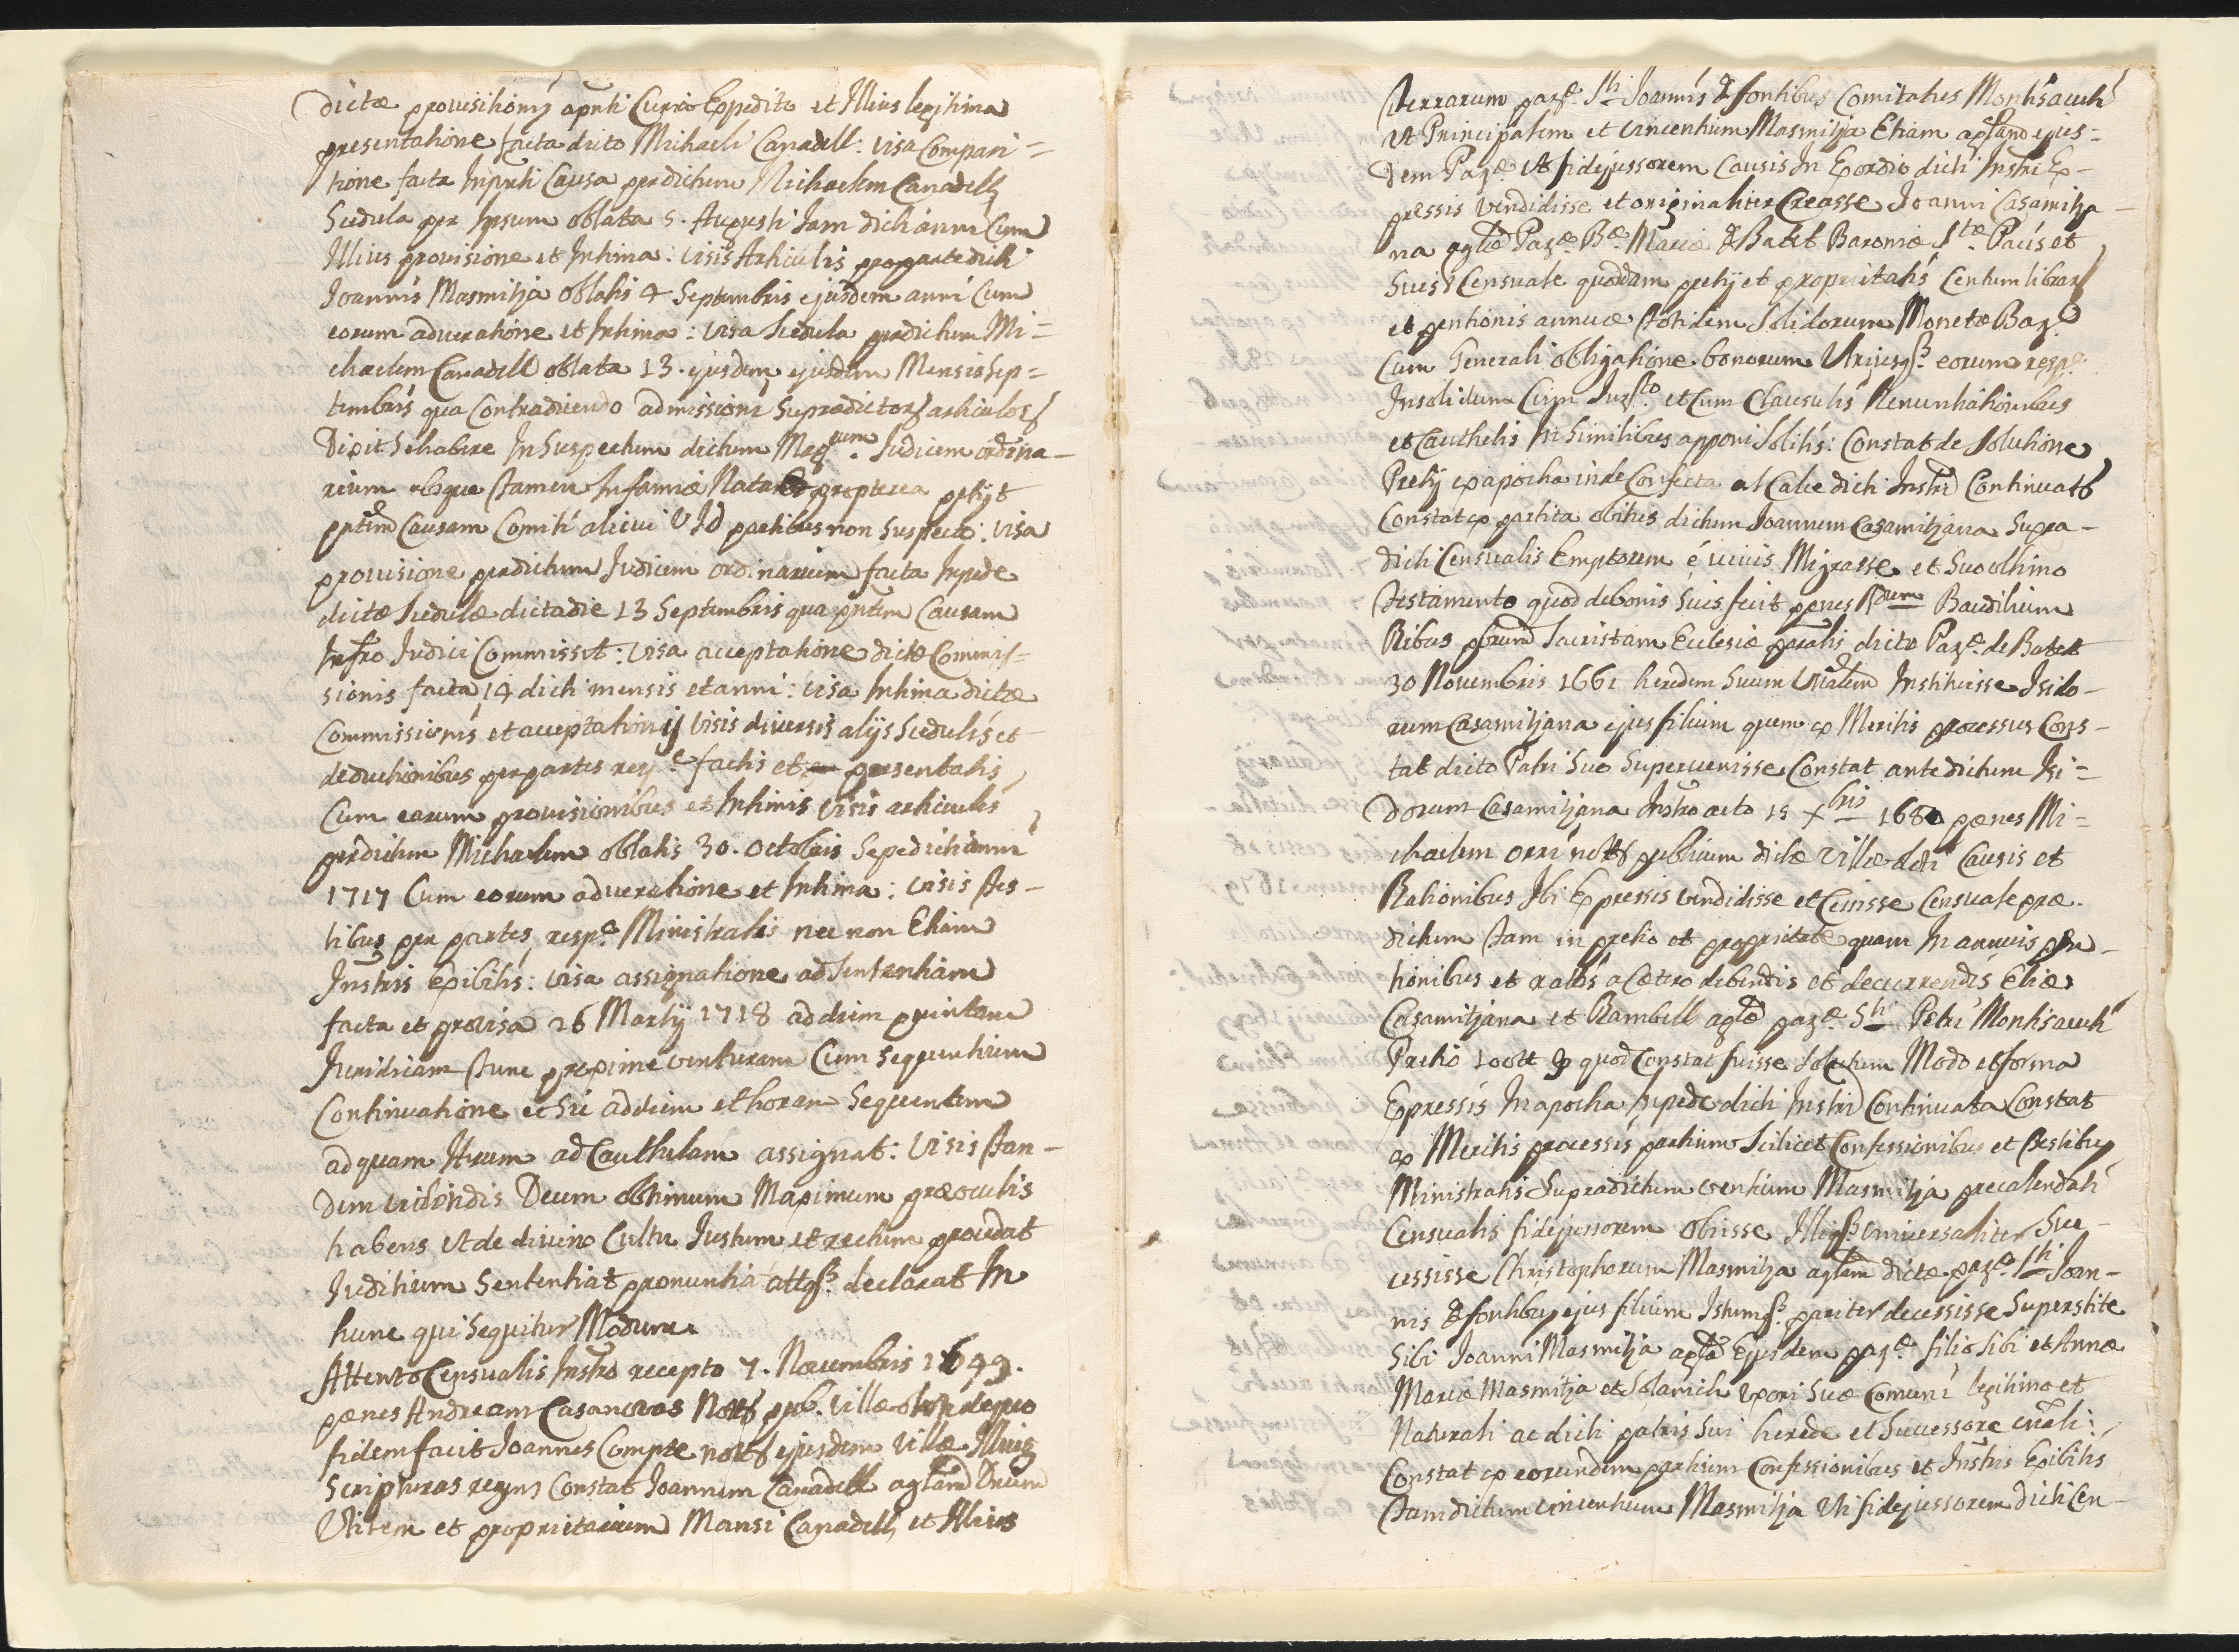 dictæ provisionis apnti Curia Expedito et Illius legitima
presentatione facta dicto Michaeli Canadell: visa Compari=
tione facta Inpnti Causa perdictum Michaelem Canadell
Scedula per Ipsum oblata 5. Augusti Jam dicti anni Cum
Illius provisione et Intima: visis Articulis propartedicti
Joannis Masmitja Oblatis 4 Septembris ejusdem anni Cum
eorum adveratione et Intima: visa Scedula perdictum Mi=
chaelem Canadell oblata 13. ejusdem ejusdem Mensis Sep=
tembris qua Contradicendo admissioni Supradictor articulor
Dixit Sehabere InSuspectum dictum Magcum. Judicem ordina-
rium absque tamen Infamiæ Nota Et propterea petijt
pntem Causam Comiti alicui VJd partibus non Suspecto: visa
provisione perdictum Judicem ordinarium facta Inpede
dictæ Scedulæ dictadie 13 Septembris qua pntem Causam
Infro Judici Commissit: visa acceptatione dictæ Commis=
sionis facta 14 dicti mensis etanni: visa Intima dictæ
Commissionis et acceptationis visis diversis alijs Scedulis et
deductionibus perpartes respe factis et presentatis
Cum earum provisionibus et Intimis visis articulis
perdictum Michaelem oblatis 30. octobris Sepedicti anni
1717 Cum eorum adveratione et Intima: visis tes-
tibus per partes respe Ministratis nec non Etiam
Instris Exibitis: visa assignatione adSententiam
facta et provisa 26 Martij 1718 addiem quintam
Juridicam tunc proxime venturam Cum Sequentium
Continuatione et Sic addiem ethoram Sequentem
adquam Iterum ad Cauthelam assignat: visis tan-
dem videndis Deum obtimum Maximum præoculis
habens Utde divino Cultu Justum et rectum procedat
Juditium Sententiat pronuntiat attqe. declarat In
hunc qui Sequitur Modum
Attento Censualis Instro recepto 7. Novembris 1649.
pænes Andream Casanovas Nott pub. villæ
fidemfacit Joannes Compte nott ejusdem villæ Illius
Scripturas regens Constat Joannem Canadell agLam Dnum
Utilem et proprietarium Mansi Canadell et Illius
terrarum parȩ. Sti Joannis de fontibus Comitatus Montisacuti
Ut Principalem et vincentium Masmitja Etiam agLam ejus=
dem Parȩ. Ut fidejussorem Causis In Exordio dicti Instri Ex-
pressis vendidisse et originaliter Creasse Joanni Casamitja-
na agLæ Parȩ Bæ. Mariæ de Batet Baroniæ Stæ. Pacis et
Suis Censuale quoddam pretij et proprietatis Centum librar
et pentionis annuæ totidem Solidorum Monetæ Bar
Cum Generali obligatione bonorum Utriusqe. eorum respe.
Insolidum Cum Jurto et Cum Clausulis Renuntiationibus
et Cauthelis In Similibus apponi Solitis: Constat de Solutione
Pretij exapocha inde Confecta at Calce dicti Instri Continuat
Constat ex partita obitus dictum Joannem Casamitjana Supra-
dicti Censualis Emptorem é vivis Migrasse et Suo olthimo
testamento quod debonis Suis fecit penes Rdum Baudilium
Ribas pbrum Sacristam Eclesiæ paralis dictæ Parȩ. de Batet
30 Novembris 1661 heredem Suum Unlem Instituisse Isido-
rum Casamitjana ejus filium quem ex Meritis processus Cons-
tat dicto Patri Suo Supervenisse Constat ante dictum Isi=
dorum Casamitjana Instro acto 15 Xbris 1680 pænes Mi=
chaelem Orri nott publicum dictæ Villæ Causis et
Rationibus Ibi Expressis vendidisse et Cessisse Censuale præ-
dictum tam in pretio et proprietate quam In annuis pen-
tionibus et ratis a Cætero debendis et decurrendis Eliæ
Casamitjana et Rambell agLæ parȩ. Sti Petri Montisacuti
Pretio 100tt quod Constat fuisse Solutum Modo et forma
Expressis In apocha Inpede dicti Instri Continuata Constat
ex Meritis processis partium Scilicet Confessionibus et testibus
Ministratis Supradictum ventium Masmitja precalendati
Censualis fidejussorem Obiisse Illiqe. Universaliter Suc-
cessisse Christophorum Masmitja agLam dictæ parȩ. Sti Joan-
nis de fontibus ejus filium Istumqe. pariter decessisse Superstite
Sibi Joanni Masmitja agLa Ejusdem parȩ. filio Sibi et Annæ
Mariæ Masmitja et Solarich Uxori Suæ Comuni legitimo et
Naturali ac dicti patris Sui herede et Successore Unali:
Constat ex eorundem partium Confessionibus et Instris Exibitis
tam dictum vincentium Masmitja Uti fidejussorem dicti Cen-